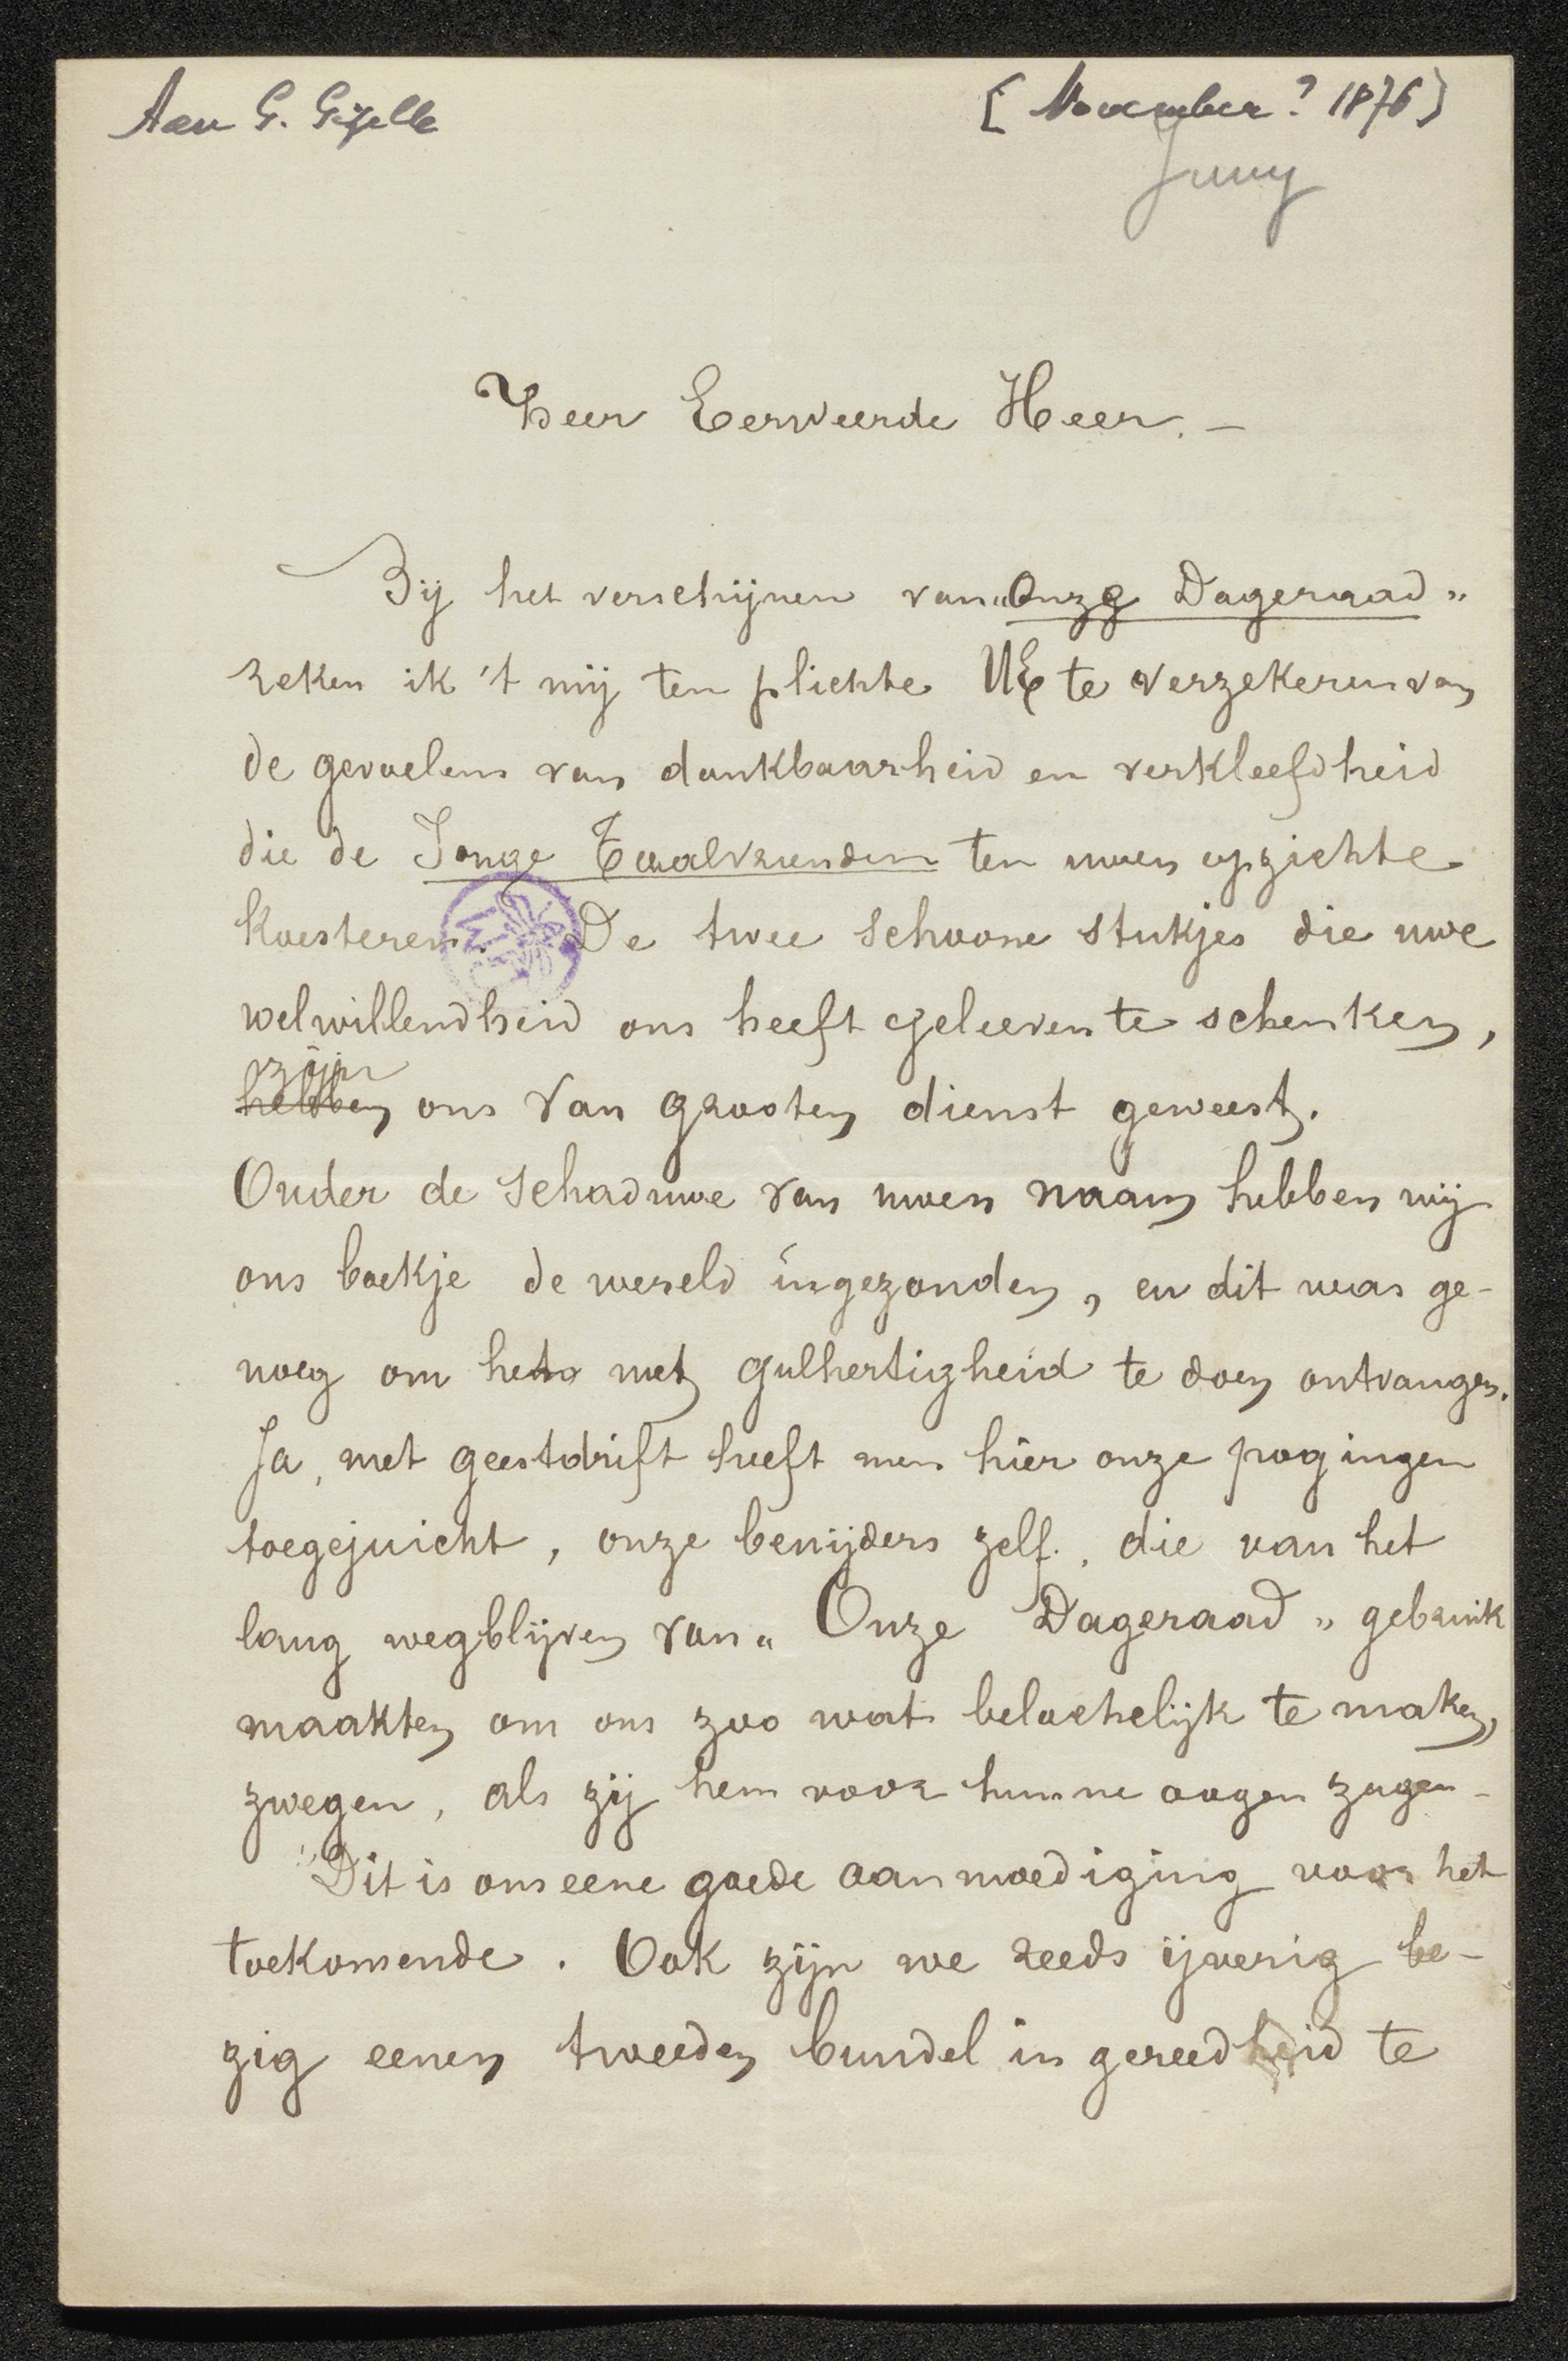 Aan G. Gezelle
[November? 1876]
Juny
Zeer Eerweerde Heer. –
Bij het verschijnen van „Onze Dageraad"
reken ik 't mij ten plichte UE te verzekeren van
de gevoelens van dankbaarheid en verkleefdheid
die de Jonge Taalvrienden ten uwen opzichte
koesteren. De twee schoone stukjes die uwe
welwillendheid ons heeft gelieven te schenken,
zijn
hebben ons van grooten dienst geweest.
Onder de schaduwe van uwen naam hebben wij
ons boekje de wereld ingezonden, en dit was ge-
noeg om het met gulhertigheid te doen ontvangen.
Ja, met geestdrift heeft men hier onze pogingen
toegejuicht, onze benijders zelf, die van het
lang wegblijven van „Onze Dageraad" gebruik
maakten om ons zoo wat belachelijk te maken,
zwegen, als zij hem voor hunne oogen zagen –
Dit is ons eene goede aanmoediging voor het
toekomende. Ook zijn we reeds ijverig be-
zig eenen tweeden bundel in gereedheid te